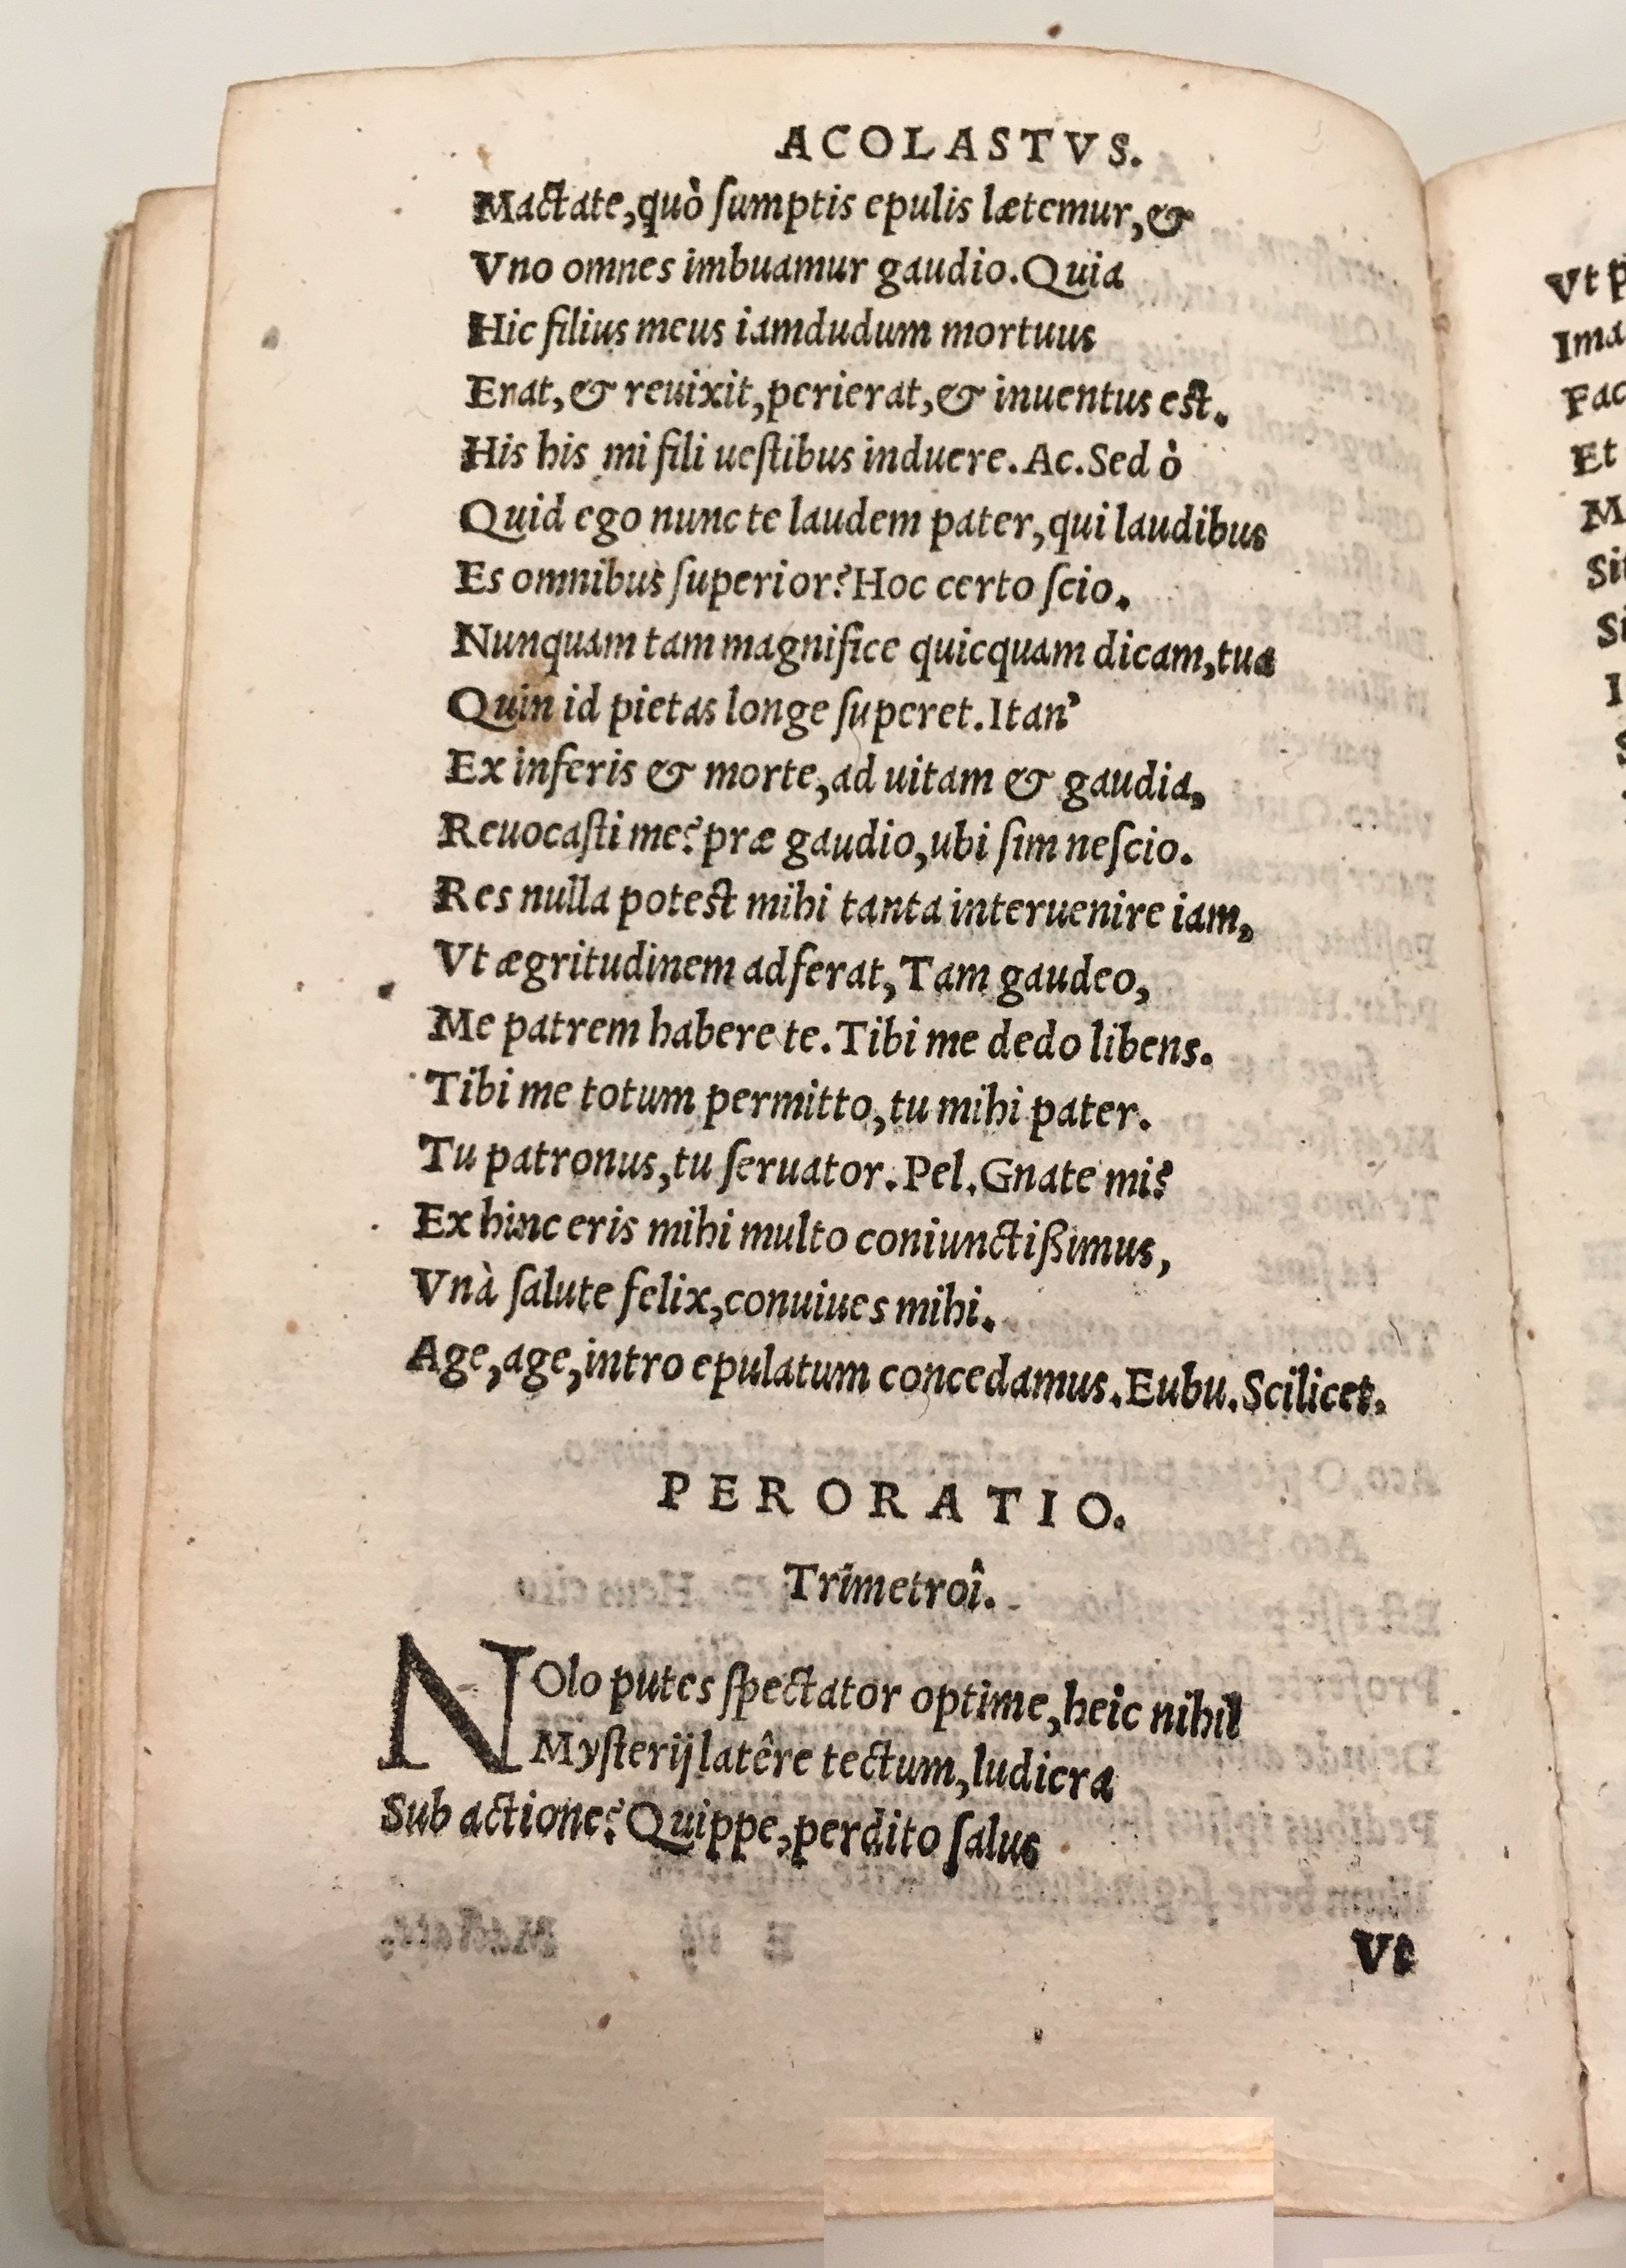 ACOLASTVS.
Mactate,quò ſumptis epulis lætemur,&
Vno omnes imbuamur gaudio.Quia
Hic filius meus iamdudum mortuus
Erat,& reuixit,perierat,& inuentus est.
His his mi fili ueſtibus induere.Ac.Sed ò
Quid ego nunc te laudem pater,qui laudibus
Es omnibus ſuperior?Hoc certo ſcio.
Nunquam tam magnifice quicquam dicam,tua
Quin id pietas longe ſuperet.Itan'
Ex inferis & morte,ad uitam & gaudia,
Reuocaſti me?præ gaudio,ubi ſim neſcio.
Res nulla potest mihi tanta interuenire iam,
Vt ægritudinem adferat,Tam gaudeo,
Me patrem habere te.Tibi me dedo libens.
Tibi me totum permitto,tu mihi pater.
Tu patronus,tu ſeruator.Pel.Gnate mi?
Ex hinc eris mihi multo coniunctißimus,
Vnà ſalute felix,conuiues mihi.
Age,age,intro epulatum concedamus.Eubu.Scilicet.
PERORATIO.
Trimetroî.
NOlo putes ſpectator optime,heic nihil
Myſterij latêre tectum,ludicra
Sub actione?Quippe,perdito ſalus
Vt
Vt
Ima
Fac
Et
M
Sit